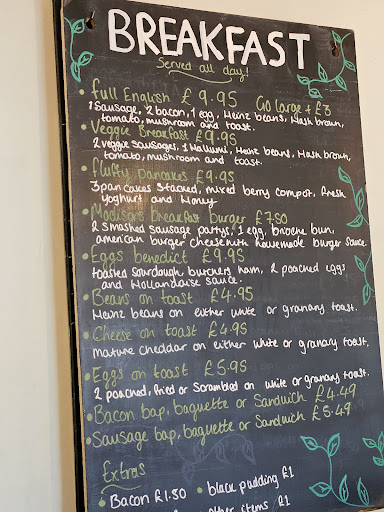 BREAKFAST
Served all day!
• Full English £9.95 Go large + £3
1 Sausage, 2 bacon, 1 egg, Heinz beans, Hash brown,
tomato, mushroom and toast.
• Veggie Breakfast £9.95
2 veggie sausages, 1 Hallumi, Heinz beans, Hash brown,
tomato, mushroom and toast.
• Fluffy pancakes £9.95
3 pancakes stacked, mixed berry compot, fresh
Yoghurt and Honey
• Madison's Breakfast burger £7.50
2 smashed sausage pattys, 1 egg, brioche bun,
american burger cheese with homemade burger sauce
• Eggs benedict £9.95
toasted sourdough, butchers ham, 2 poached eggs
and Hollandaise sauce.
• Beans on toast £4.95
Heinz beans on either white or granary toast.
• Cheese on toast £4.95
mature cheddar on either white or granary toast.
• Eggs on toast £5.95
2 poached, fried or Scrambled on white or granary toast.
• Bacon bap, baguette or Sandwich £4.49
• Sausage bap, baguette or Sandwich £5.49
Extras
• Bacon £1.50 • black pudding £1
other items £1